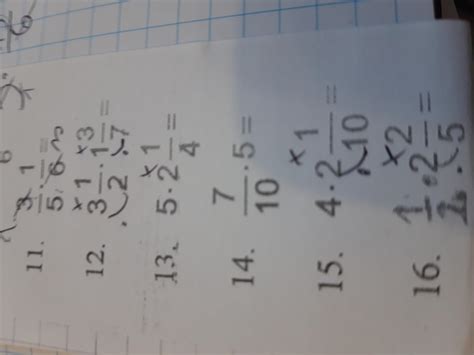 11. 3/5 · 1/6 =
12. 3 1/2 · 1 3/7 =
13. 5 · 2 1/4 =
14. 7/10 · 5 =
15. 4 · 2 1/10 =
16. 1/2 · 2 2/5 =